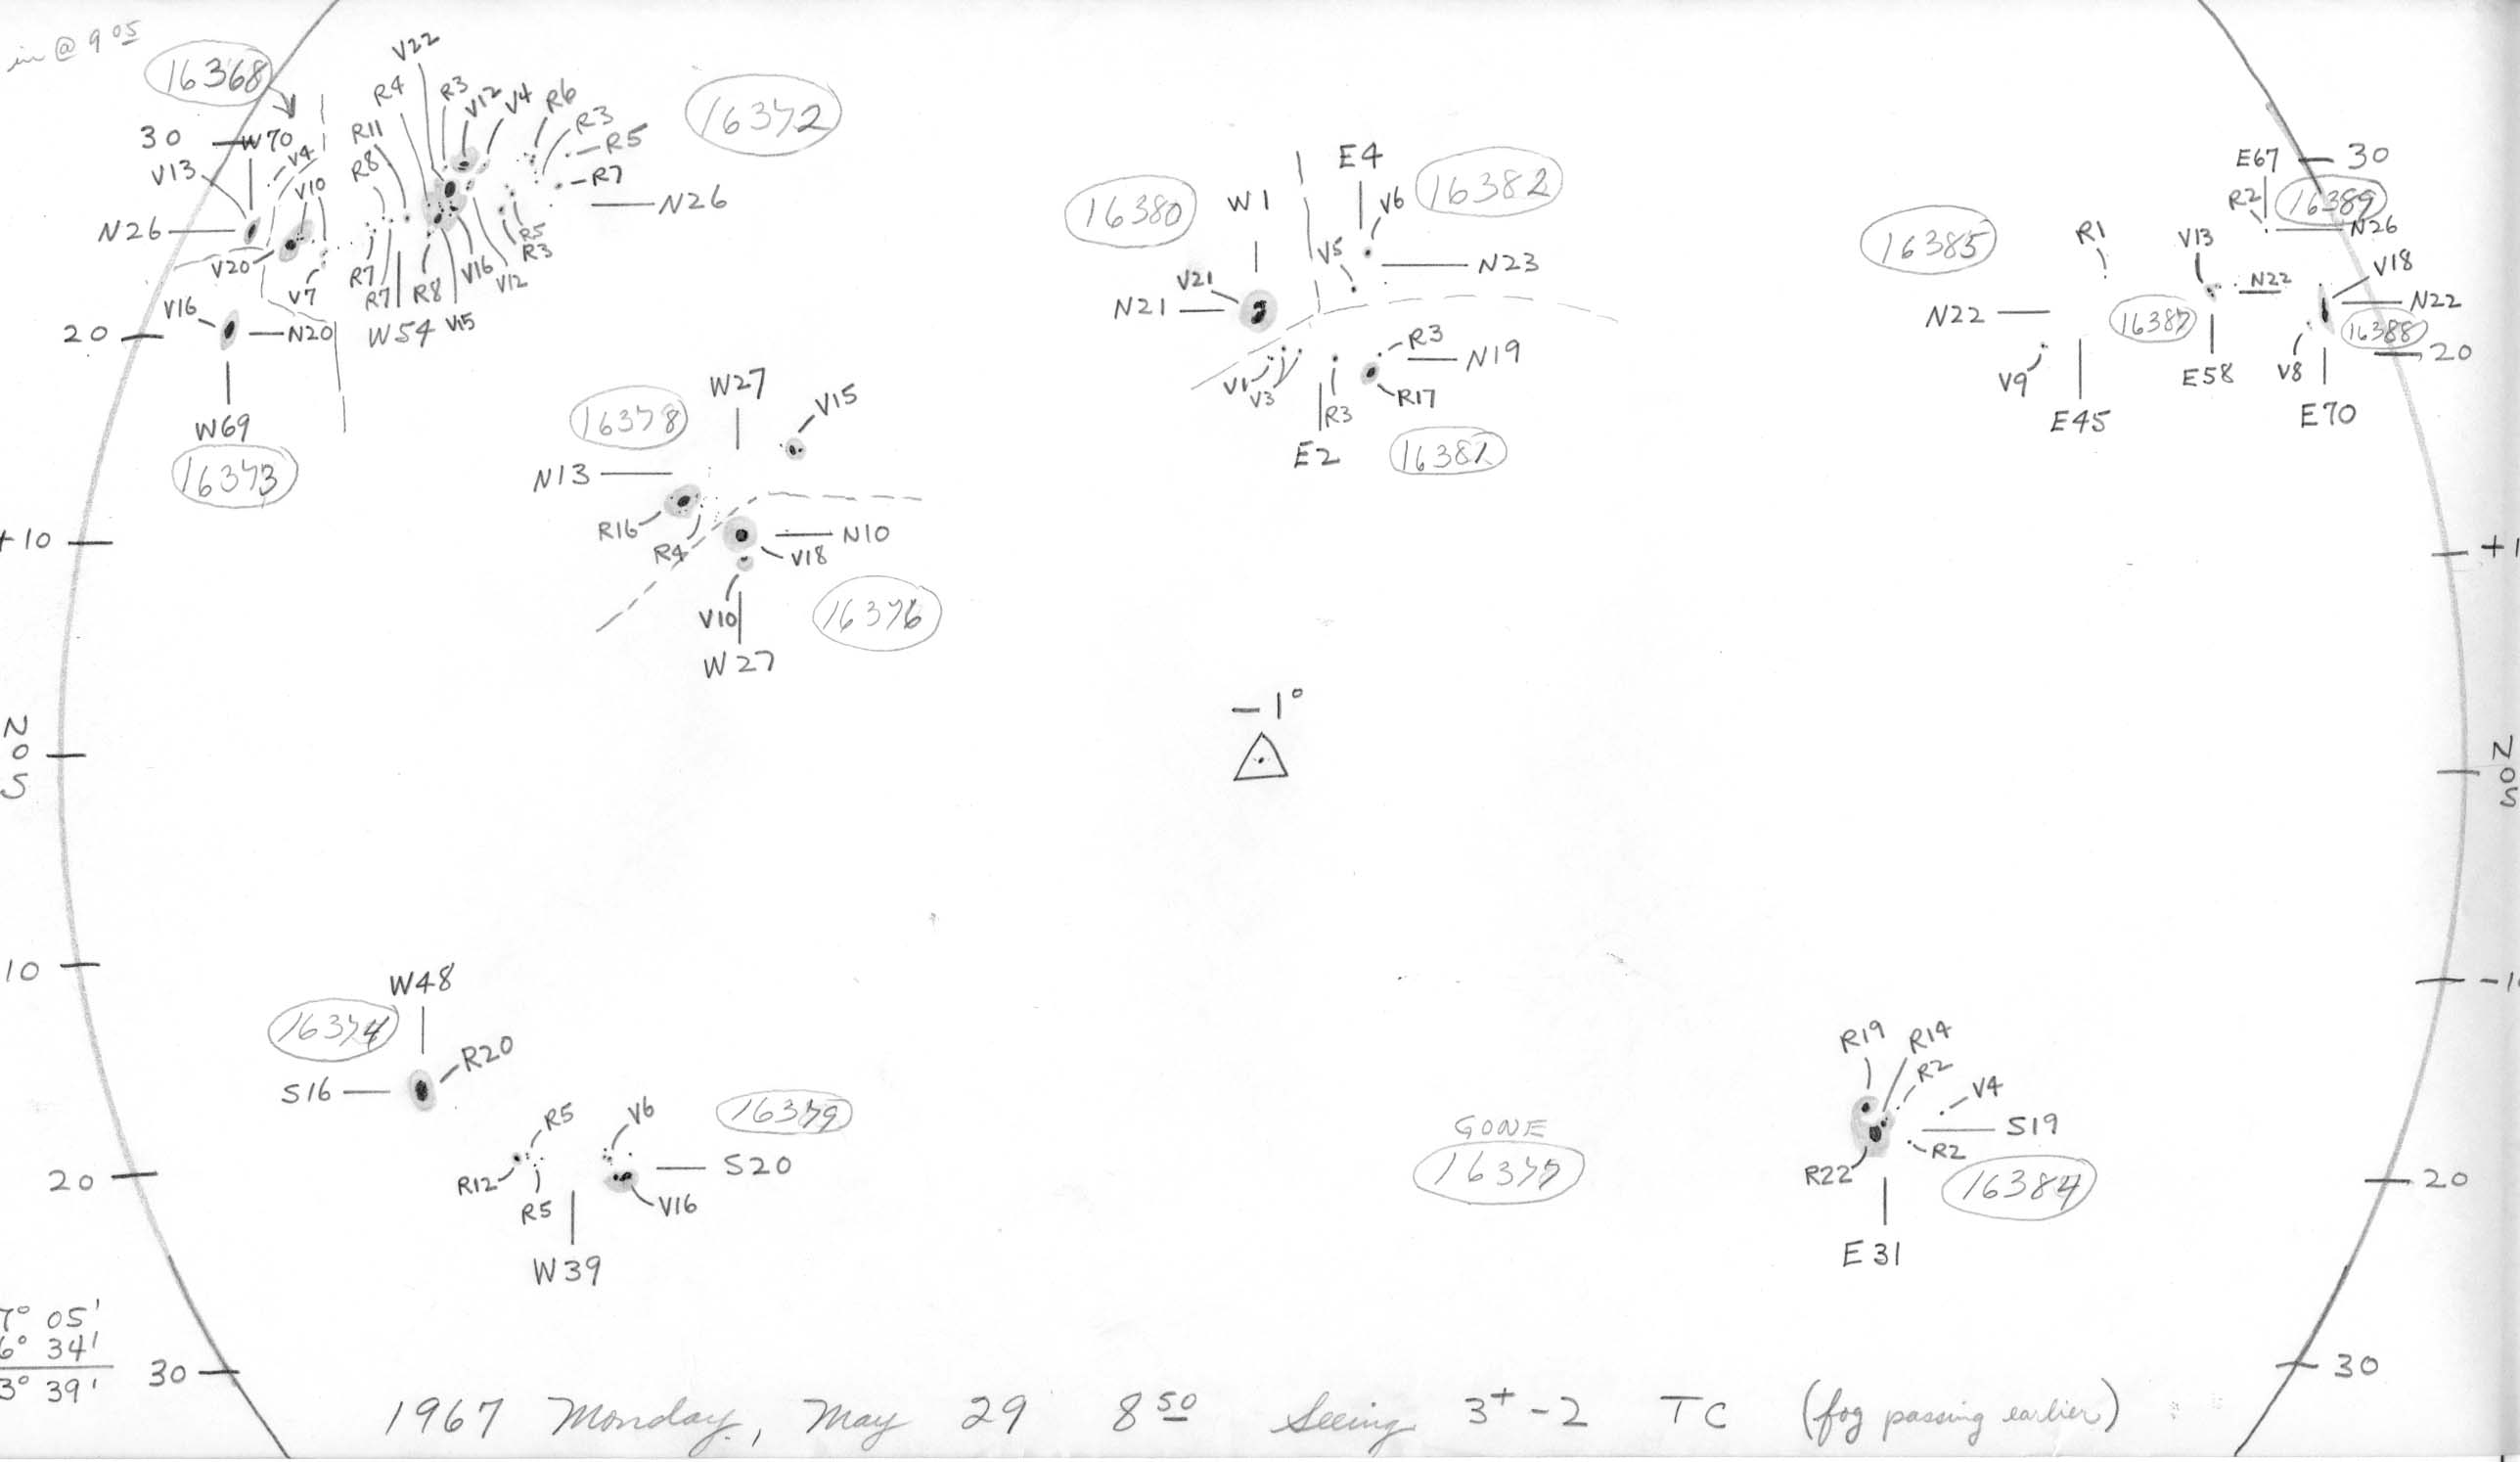 in @ 9 05
16368
V22
R4
R3
V12
V4
R6
R3
R5
R7
16372
30
W70
V4
V13
V10
R11
R8
N26
N26
V20
V7
R7
R7
R8
V16
V12
R5
R3
V15
W54
V16
N20
20
W69
16373
16380
W1
E4
V6
16382
V5
N23
V21
N21
V1
V3
R3
N19
R17
R3
E2
16381
E67
30
R2
16389
N26
16385
R1
V13
V18
N22
N22
N22
16387
16388
20
V9
E58
V8
E45
E70
W27
V15
16378
N13
R16
R4
N10
V18
+10
V10
16376
W27
+1
N
0
S
-1°
N
0
S
10
W48
16374
R20
S16
-1
R5
V6
16379
R12
S20
R5
V16
20
W39
GONE
16377
R19
R14
R2
V4
S19
R2
R22
16384
20
E31
7° 05'
6° 34'
3° 39'
30
30
1967 Monday, May 29 8 50 Seeing 3+-2 TC (fog passing earlier)